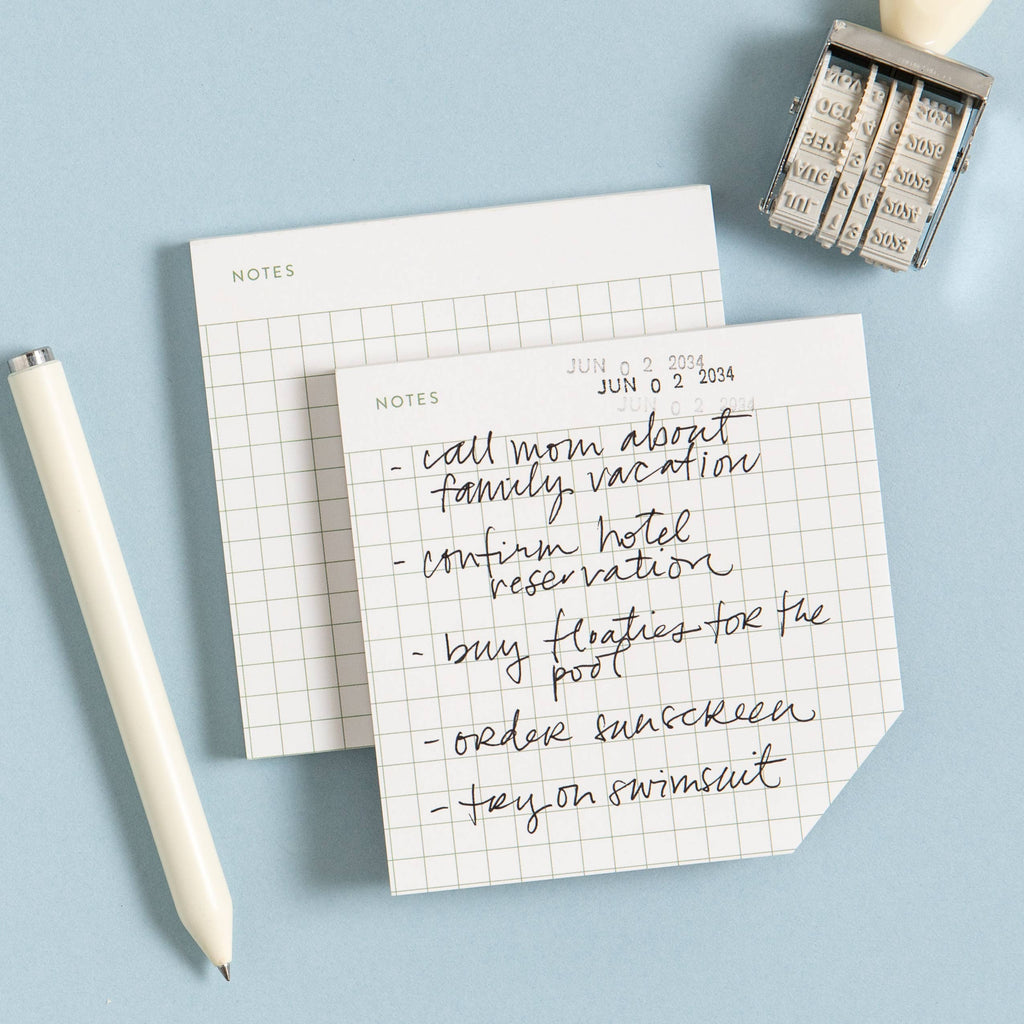 NOTES
NOTES
JUN 0 2 2034
JUN 0 2 2034
JUN 0 2 2034
- call mom about
family vacation
- confirm hotel
reservation
- buy floaties for the
pool
- order sunscreen
- try on swimsuit
NOV
OCT
SEPT
AUG
JUL
2026
2025
2024
2023